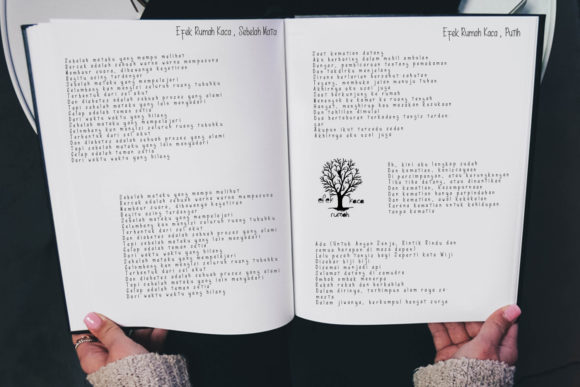 Efek Rumah Kaca , Sebelah Mata
Sebelah mataku yang mampu melihat
Bercak adalah sebuah warna warna mempesona
Membaur suara, dibawanya kegetiran
Begitu asing terdengar
Sebelah mataku yang mempelajari
Gelombang kan mengisi seluruh ruang tubuhku
Terbentuk dari sel akut
Dan diabetes adalah sebuah proses yang alami
Tapi sebelah mataku yang lain menyadari
Gelap adalah teman setia
Dari waktu waktu yang hilang
Sebelah mataku yang mempelajari
Gelombang kan mengisi seluruh ruang tubuhku
Terbentuk dari sel akut
Dan diabetes adalah sebuah proses yang alami
Tapi sebelah mataku yang lain menyadari
Gelap adalah teman setia
Dari waktu waktu yang hilang
Sebelah mataku yang mampu melihat
Bercak adalah sebuah warna warna mempesona
Membaur suara, dibawanya kegetiran
Begitu asing terdengar
Sebelah mataku yang mempelajari
Gelombang kan mengisi seluruh ruang tubuhku
Terbentuk dari sel akut
Dan diabetes adalah sebuah proses yang alami
Tapi sebelah mataku yang lain menyadari
Gelap adalah teman setia
Dari waktu waktu yang hilang
Sebelah mataku yang mempelajari
Gelombang kan mengisi seluruh ruang tubuhku
Terbentuk dari sel akut
Dan diabetes adalah sebuah proses yang alami
Tapi sebelah mataku yang lain menyadari
Gelap adalah teman setia
Dari waktu waktu yang hilang
Efek Rumah Kaca , Putih
Saat kematian datang
Aku berbaring dalam mobil ambulan
Dengar, pembicaraan tentang pemakaman
Dan takdirku menjelang
Sirene berlarian bersahut-sahutan
Tegang, membuka jalan menuju tuhan
Akhirnya aku usai juga
Saat berkunjung ke rumah
Menengok ke kamar ke ruang tengah
Hangat, menghirup bau masakan kesukaan
Dan tahlilan dimulai
Doa bertaburan terkadang tangis terden-
gar
Akupun ikut tersedu sedan
Akhirnya aku usai juga
efek kaca
rumah
Oh, kini aku lengkap sudah
Dan kematian, keniscayaan
Di persimpangan, atau kerongkongan
Tiba tiba datang, atau dinantikan
Dan kematian, kesempurnaan
Dan kematian hanya perpindahan
Dan kematian, awal kekekalan
Karena kematian untuk kehidupan
tanpa kematia
Ada (Untuk Angan Senja, Rintik Rindu dan
semua harapan di masa depan)
Lalu pecah tangis bayi Seperti kata Wiji
Disebar biji biji
Disemai menjadi api
Selamat datang di samudra
Ombak ombak menerpa
Rekah rekah dan berkahlah
Dalam dirinya, terhimpun alam raya se-
mesta
Dalam jiwanya, berkumpul hangat surga